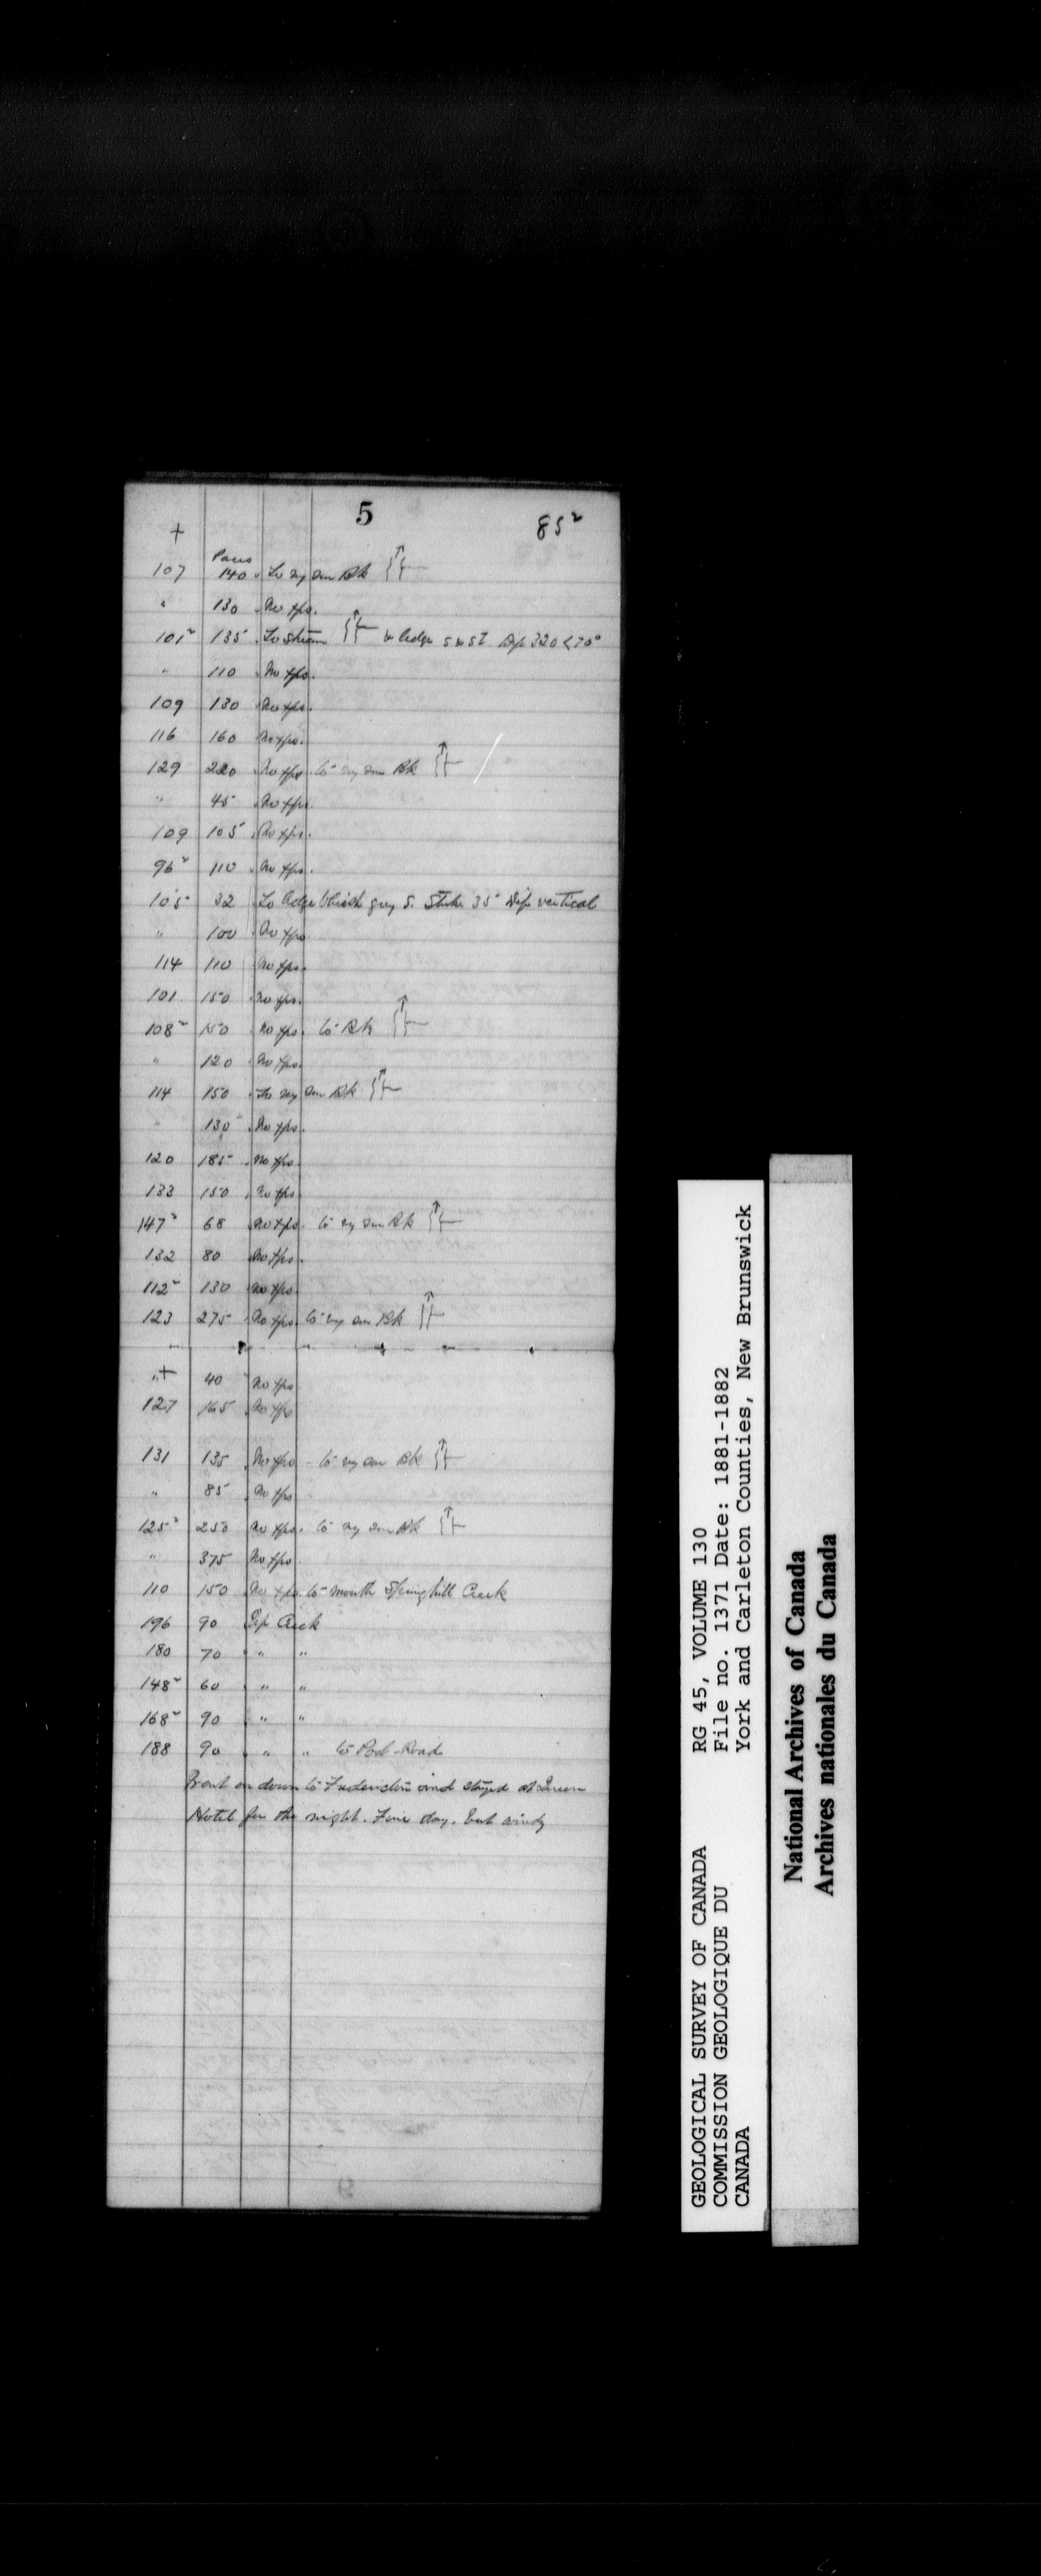 5
85²
+
Paces
107 140 To sm Bk
" 130 No xps.
101² 135 To Stream to ledge Dip 320 < 70°
" 110 No xps.
109 130 No xps.
116 160 No xps.
129 220 No xps to sm Bk
" 45 No xps.
109 105 No xps.
96² 110 No xps.
105 32 To ledge bluish grey S. Strike 35 Dip vertical
" 100 No xps
114 110 No xps.
101 150 No xps.
108² 150 No xps. to Bk
" 120 No xps.
114 150 To sm Bk
" 130 No xps.
120 185 No xps.
133 150 No xps
147² 68 No xps. to sm Bk
132 80 No xps.
112² 130 No xps.
123 275 No xps. to sm Bk
"+ 40 No xps
127 165 No xps
131 135 No xps - to sm Bk
" 85 No xps
125² 250 No xps. to sm Bk
" 375 No xps
110 150 No xps. to mouth Springhill Creek
196 90 Up Creek
180 70 " "
148² 60 " "
168² 90 " "
188 90 " " to Post-Road
Went on down to Fredericton and stayed at Queen
Hotel for the night. Fine day, but windy
GEOLOGICAL SURVEY OF CANADA RG 45, VOLUME 130
COMMISSION GEOLOGIQUE DU File no. 1371 Date: 1881-1882
CANADA York and Carleton Counties, New Brunswick
National Archives of Canada
Archives nationales du Canada